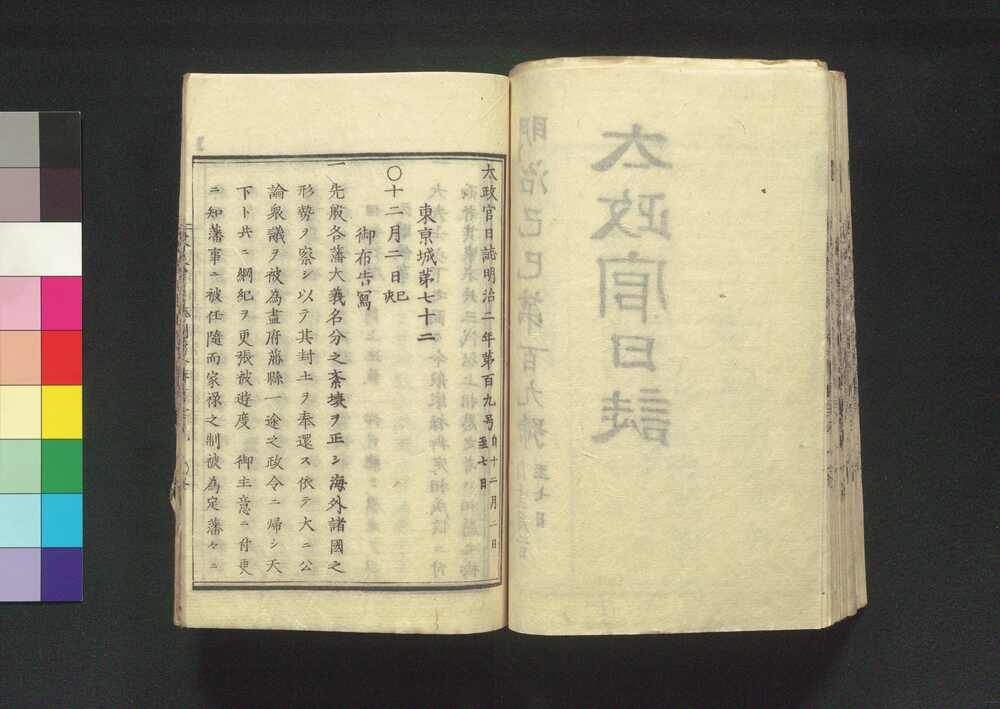 太政官日誌
明治己巳第百九號
太政官日誌明治二年第百九号自十二月二日至七日
東京城第七十二
〇十二月二日己
御布告寫
一先般各藩大義名分之紊壊ヲ正シ海外諸國之
形勢ヲ察シ以テ其封土ヲ奉還ス依テ大ニ公
論衆議ヲ被為盡府藩縣一途之政令ニ帰シ天
下ト共ニ綱紀ヲ更張被遊度 御主意ニ付更
ニ知藩事ニ被任隨而家禄之制被為定藩々ニ